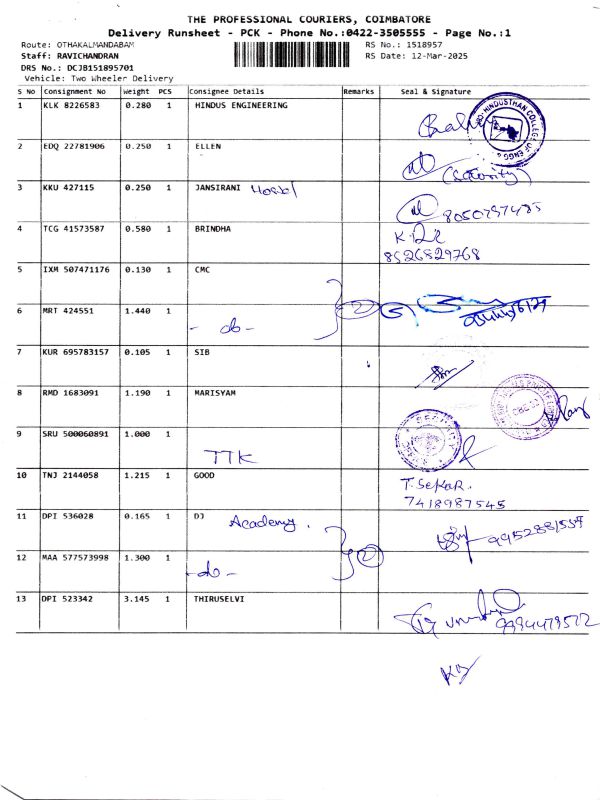 THE PROFESSIONAL COURIERS, COIMBATORE
Delivery Runsheet - PCK - Phone No.:0422-3505555 - Page No.:1
Route: OTHAKALMANDABAM RS No.: 1518957
Staff: RAVICHANDRAN RS Date: 12-Mar-2025
DRS No.: DCJB151895701
Vehicle: Two Wheeler Delivery
S No Consignment No Weight PCS Consignee Details Remarks Seal & Signature
1 KLK 8226583 0.280 1 HINDUS ENGINEERING
2 EDQ 22781906 0.250 1 ELLEN
(Security)
3 KKU 427115 0.250 1 JANSIRANI Hostel
4 TCG 41573587 0.580 1 BRINDHA
8526829768
5 IXM 507471176 0.130 1 CMC
6 MRT 424551 1.440 1 - do - 2 5
7 KUR 695783157 0.105 1 SIB
8 RMD 1683091 1.190 1 MARISYAM
9 SRU 500060891 1.000 1 TTK
10 TNJ 2144058 1.215 1 GOOD T. SeKaR.
7418987545
11 DPI 536028 0.165 1 DJ Academy.
12 MAA 577573998 1.300 1 - do - 2
13 DPI 523342 3.145 1 THIRUSELVI